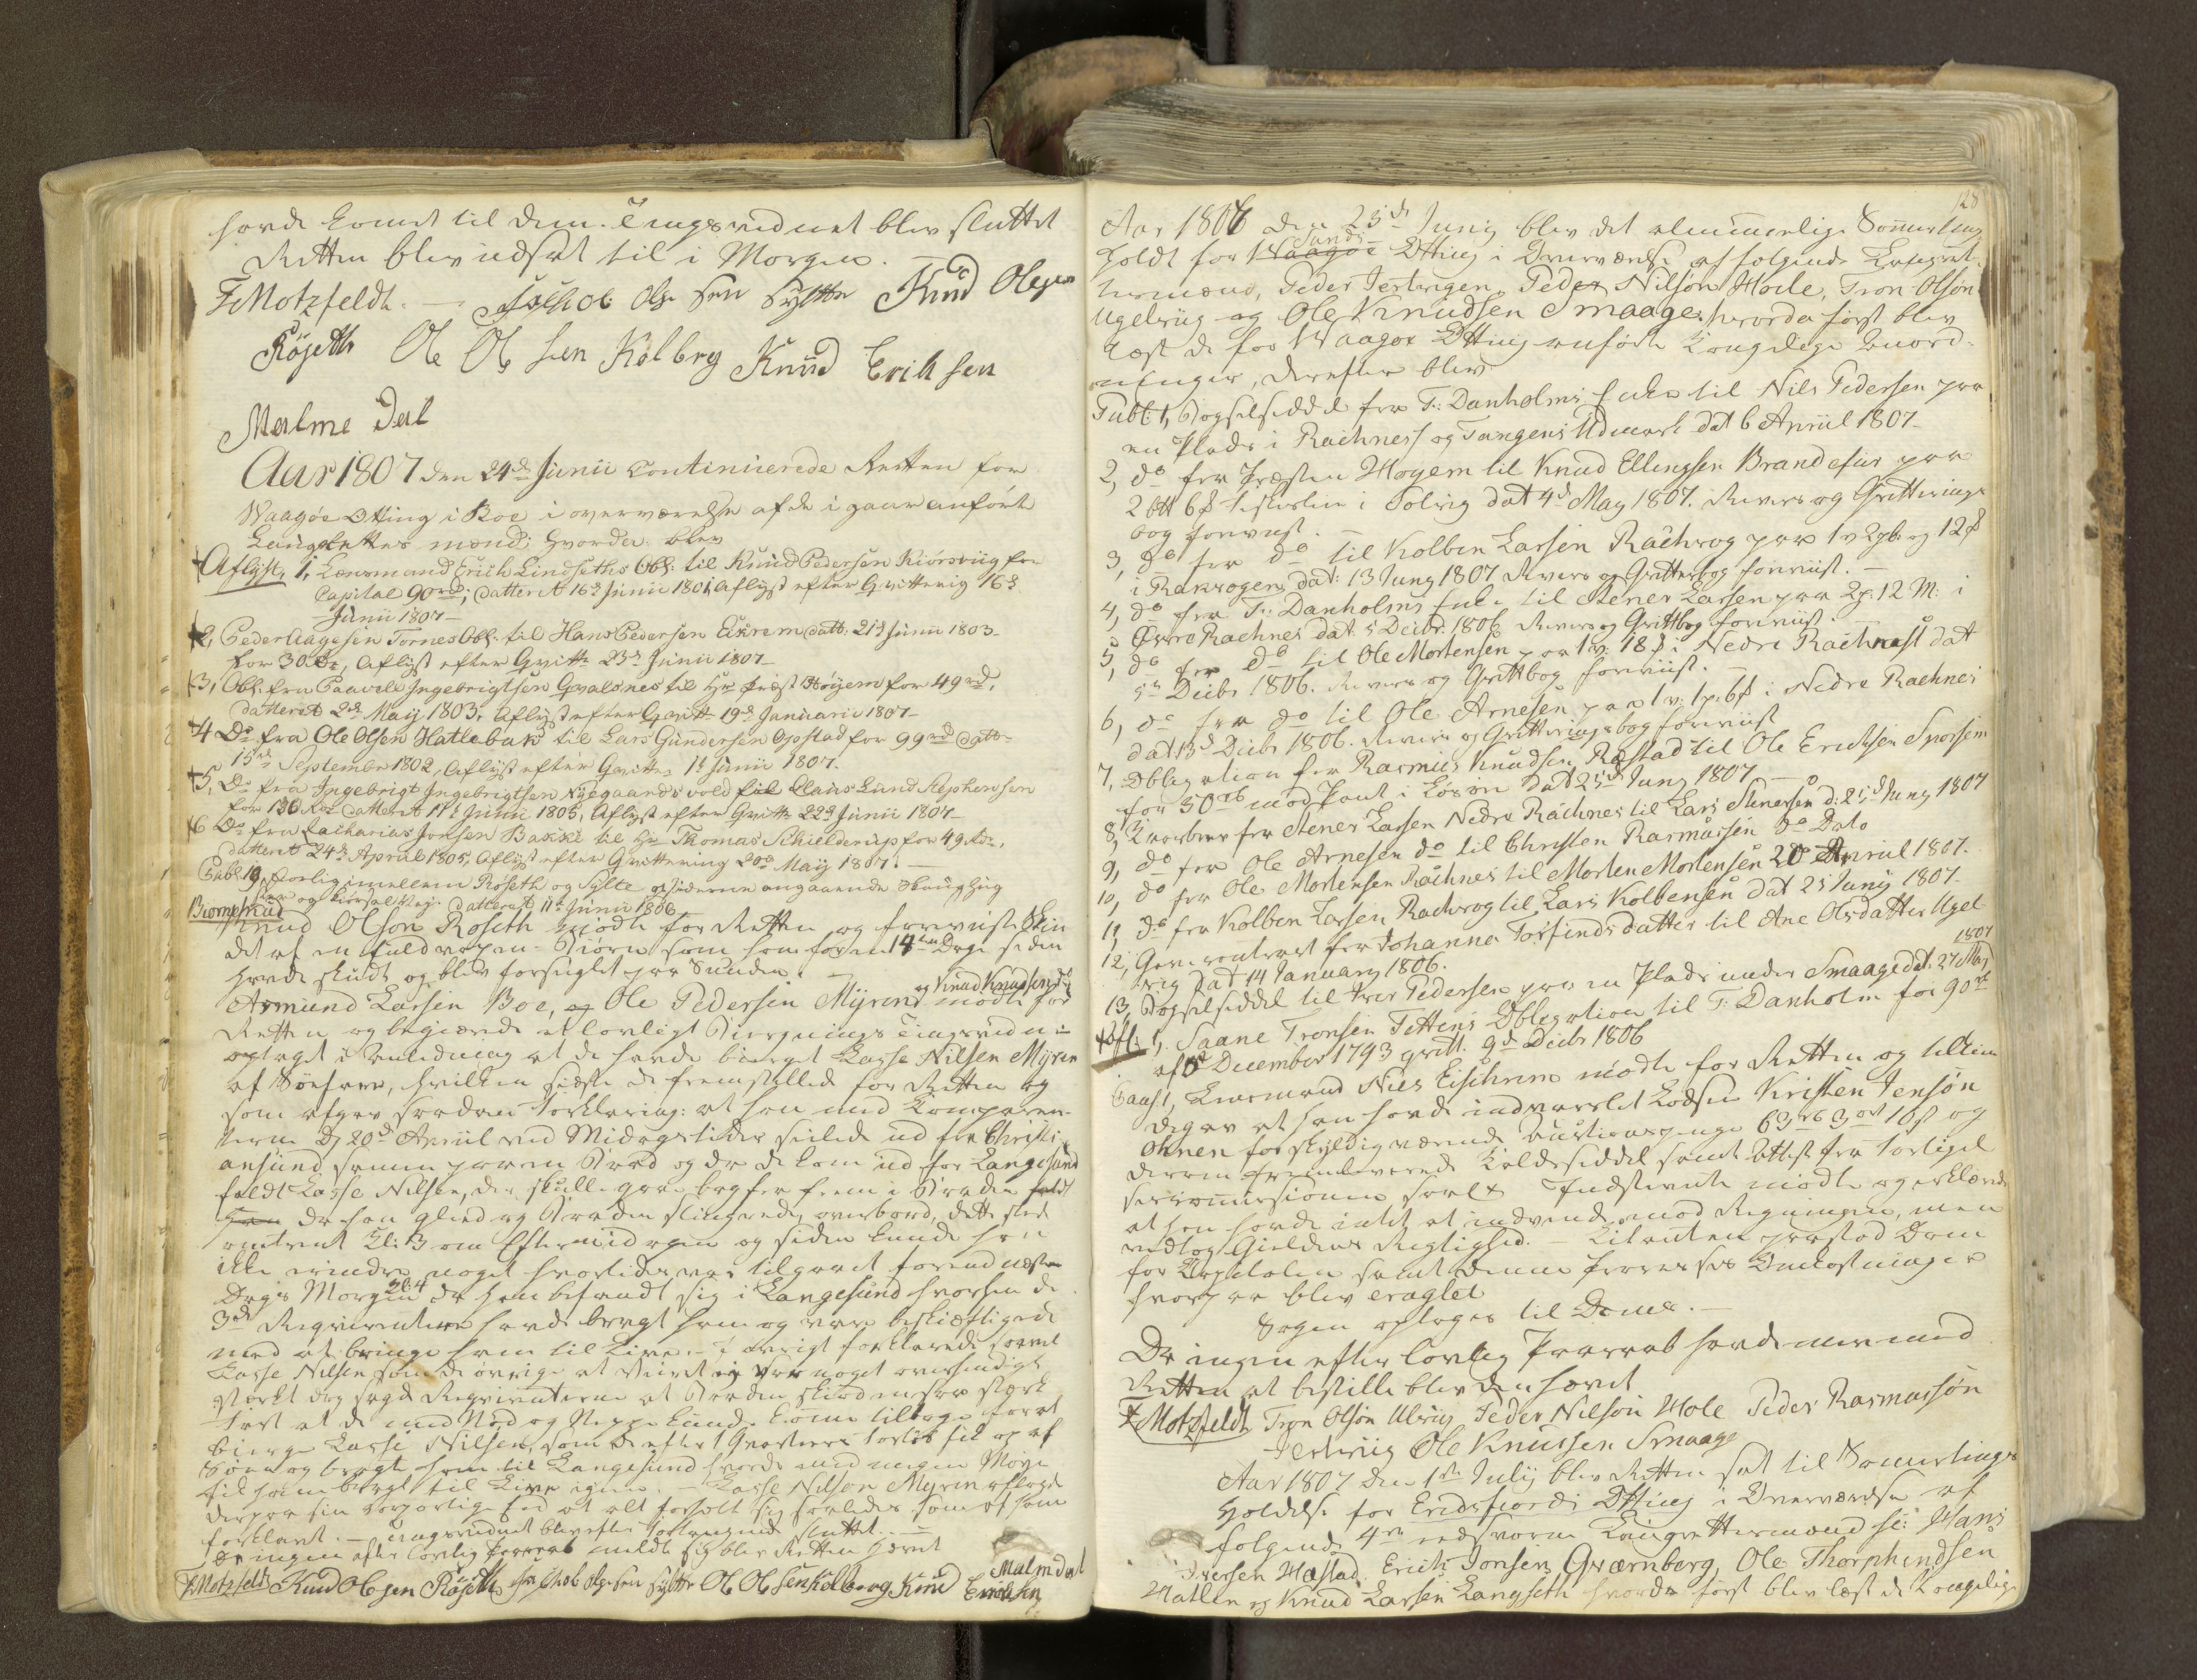 havde komet til dem. Tingsvidnet blev sluttet
Retten blev udsat til i Morgen. —
F: Motzfeldt. — Jachob Ols Sen Sylte Knud Olsen
Röseth Ole Ols sen Kolbrg Knud Erich sen
Malme Dal
Aar 1807 den 24de Junii Continuerede Retten for
Waagöe Otting i Boe i overværelse af de i gaar anförte
Laugrettes mænd; hvorda blev
Aflyst, 1, Lænsmand Erich Lindsethes Obl: til Knud Pedersen Kiörsviig for
Capital 90 rd; datteret 16de Junii 1801, aflyst efter Qvittering 16d
Junii 1807 —
2, Peder Aagesen Tornes Obl: til Hans Pedersen Eikrem datt: 21d Junii 1803 —
for 30 rdr, Aflyst efter Qvitt: 23d Junii 1807 —
3, Obl: fra Paavel Ingebrigtsen Gvalsnes til Hr Præst Höyem for 49 rd,
datteret 2de Maij 1803, aflyst efter Qvitt: 19d Januarii 1807 —
4 Do fra Ole Olsen Hatlebak til Lars Gundersen Opstad for 99 rd datt:
15de Septembr 1802, Aflyst efter Qvitte: 1t Junii 1807.
5, Do fra Ingebrigt Ingebrigtsen Nyegaardsvold til Claus Lund Stephensen
for 130 Rdr datteret 11t Junii 1805, Aflyst efter Qvitt: 22d Junii 1807 —
6 Do fra Zacharias Jonsen Bakke til Hr Thomas Schielderup for 49 Rdr,
datteret 24de April 1805, Aflyst efter Qvittering 20d Maij 1807. —
Publ: 19, Forlig imellem Röseth og Sylte angaaende
og datteret 11t Junii 1806
Knud Olson Roseth mödte for Retten og foreviiste Skin
det af en fuldvoxen Biörn som han for 14ten Dage siden
havde skudt og blev forsuglet paa Sunden. —
Asmund Larsen Boe, og Ole Pedersen Myren og Knud Knudsen do mödte for
Retten og begierede et lovligt Biergnings Tingsvidne
optaget i Anledning at de havde bierget Lasse Nilsen Myren
af Söefare, hvilken sidste de fremstillede for Retten og
som afgav saadan Forklaring: at han med Comparen-
terne d. 20de April ved Midagstider seilede ud fra Christi-
ansund samme paa en Baad og da de kom ud for Langesund
faldt Lasse Nilsen, der skulle gaae bag fra frem i Baaden
da han gled og Baaden slingrede, overbord, dette skede
omtrent Kl: 3 om Eftermidagen og siden kunde han
ikke erindre noget hvorledes var tilgaaet forend næste
Dags Morgen Kl: 4 da han befandt sig i Langesund hvorhen de
3de Reqvirentere havde bragt ham og vare beskiæftigede
med at bringe ham til Live. — I övrigt forklarede saavel
Lasse Nilsen som de övrige at Veiret ey var noget overhændigt
stærkt dog sagde Reqvirenterne at Baaden skiöd en saa stærk
Fart at de med Nöd og Neppe kunde komme tilbage for at
bierge Lasse Nilsen, som de efter 1 Qvarteers Forlöb fik op af
Söen og bragte ham til Langesund hvor de med megen Möye
fik ham bragt til Live igien. — Lasse Nilsen Myren aflagde
derpaa sin corporlige Eed at alt forholt sig saaledes som af ham
forklaret. — Tingsvidnet blev efter Forlangende sluttet. —
Da ingen efter lovlig Paaraab meldte sig blev Retten hævet
F: Motzfeldt Knud Olsen Röseth Jachob Olsen Sylte Ole Ols sen Kolberg Knud Erichsen
Malmedal
128
Aar 1806 den 25de Junij blev det almindelige Sommerting
holdt for Waagöe Sunds Otting i Overværelse af folgende Laugret-
tesmænd, Peder Jertvigen, Peder Nilsön Hole, Tron Olsön
Ugelviig og Ole Knudsen Smaage, hvorda först blev
læst de for Waagöe Otting anförte Kongelige Anord-
ninger, derefter blev
Publ: 1, Bygselseddel fra Fr: Danholms Enke til Nils Pedersen paa
en Plads i Rachness og Tangens Udmark dat 6 Apriil 1807 —
2, do fra Præsten Höyem til Knud Ellingsen Brandefur paa
2 ott 6 β Fiskeleie i Solvig dat 4de May 1807. Revers og Qvitterings
bog forevist. —
3, do fra do til Kolben Larsen Rachvog paa 1 v 2 pd og 12 β
i Rakvogen dat: 13 Junij 1807 Revers og Qvitterbog foreviist. —
4, do fra Fr: Danholms Enke til Stener Larsen paa 2 p: 12 M: i
Övre Rachnes dat: 5 Decbr 1806 Revers og Qvittbog foreviist. —
5, do fra do til Ole Mortensen paa 1 v: 18 β i Nedre Rachnest dat
5te Decbr 1806. Revers og Qvittbog foreviist. —
6, do fra do til Ole Arnesen paa 1 v: 1 p: 6 β i Nedre Rachnes
dat 13d Decbr 1806. Revers og Qvitteringsbog foreviist
7, Obligation fra Rasmus Knudsen Rœstad til Ole Erichsen Sporsem
for 50 rd mod Pant i Lösöre dat 25de Junij 1807 —
8, Kaarbrev fra Stener Larsen Nedre Rachnes til Lars Stenersen d: 25d Junij 1807
9, do fra Ole Arnesen do til Christen Rasmussen do Dato
10, do fra Ole Mortensen Rachnes til Morten Mortensen 20 Apriil 1807.
11, do fra Kolben Larsen Rachvog til Lars Kolbensen dat 25 Junij 1807.
12, Gavecontract fra Johanna Torfinds datter til Ane Olsdatter Ugel
vig dat 14 January 1806.
13, Bygselseddel til Iver Pedersen paa en Plads under Smaage dat: 27 May 1807
Afl: 1, Saane Tronsen Tettens Obligation til F: Danholm for 90 rd
af December 1793 qvitt. 9d Decbr 1806
Caus 1, Lensmand Niels Eischrem mödte for Retten og tilkien
degav at han havde indvarslet Lodsen Kristen Jensön
Ohnen for skyldigværende Auctionspenge 63 rd 3 ort 10 β og
derom fremleverede Kaldseddel samt Attest fra Forligel
sescommissionen saalt Indstevnte mödte og erklærede
at han havde intet at indvende mod Regningen, men
vedtog Gieldens Rigtighed. — Citanten paastod Dom
for Capitalen samt denne Processes Omkostninger
hvorpaa blev eragtet
Sagen optages til Doms. —
Da ingen efter lovlig Paaraab havde mere med
Retten at bestille blev den hævet
F: Motzfeldt Tron Olsön Ulvig Peder Nilson Hole Peder Rasmusson
Jertviig Ole Knutsen Smaage
Aar 1807 den 1ste Julij blev Retten sat til Sommertings
Holdelse for Eridsfiords Otting i Overværelse af
folgende 4re edsvorne Laugrettesmænd sc: Hans
Iversen Hastad, Erich Jonsen Qværnberg, Ole Thorphindsen
Hatlen og Knud Larsen Langseth hvorda först blev læst de Kongelige